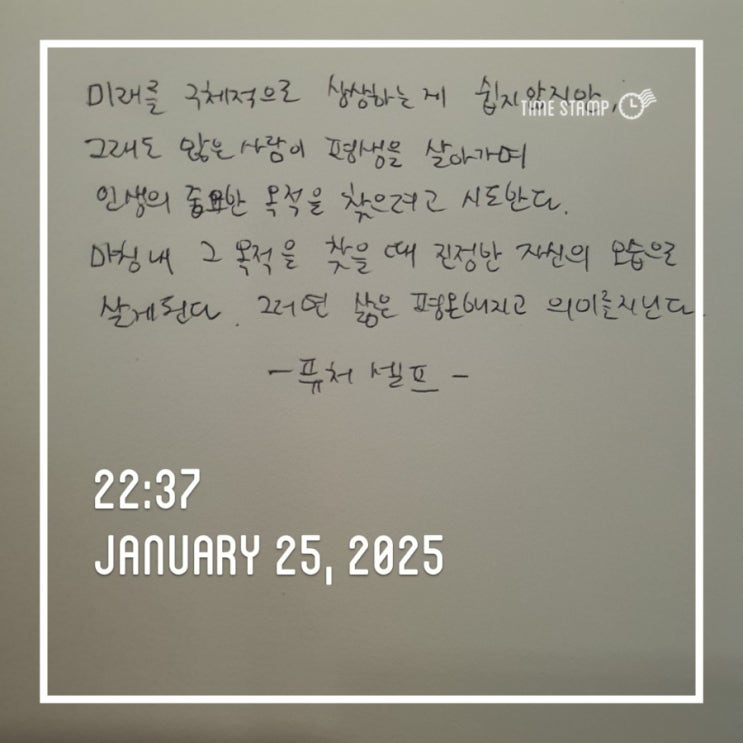 미래를 구체적으로 상상하는게 쉽지않지만,
TIME STAMP
그래도 많은 사람이 평생을 살아가며
인생의 중요한 목적을 찾으려고 시도한다.
마침내 그 목적을 찾을 때 진정한 자신의 모습으로
살게된다. 그러면 삶은 평온해지고 의미를지닌다.
- 퓨처 셀프 -
22:37
JANUARY 25, 2025